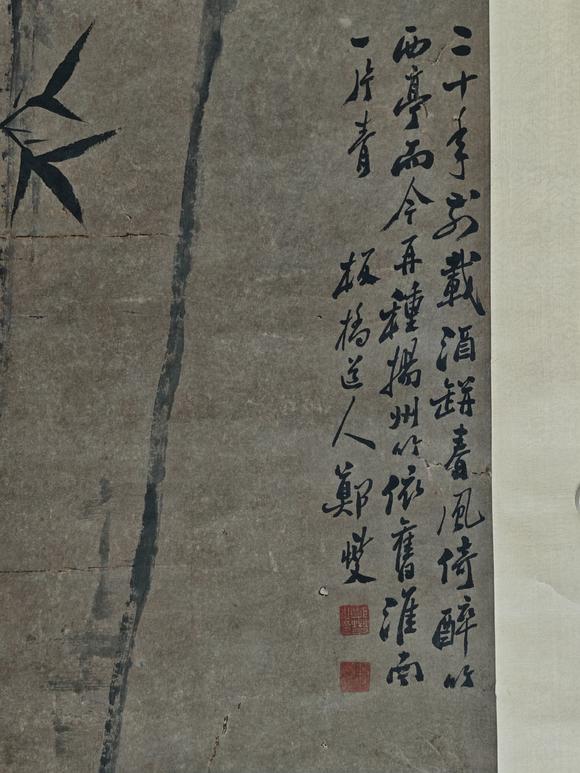 二十年前載酒缾春風倚醉竹
西亭而今再種揚州竹依舊淮南
一片青 板橋道人鄭燮